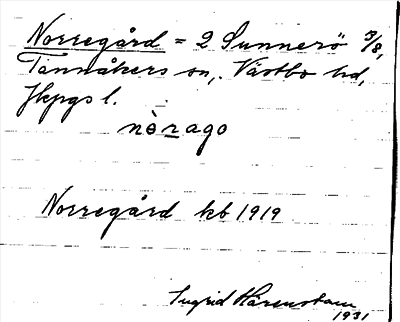 Norregård = 2 Sunnerö 3/8,
Tånnåkers sn, Västbo hd,
Jkpgs l.
nòrago
Norregård kb 1919
Ingrid Härenstam
1931